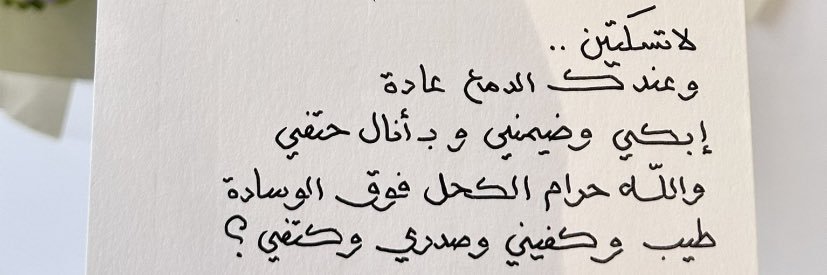 لاتسكتين ..
وعندك الدمع عادة
إبكي وضيمني و بـ أنال حتفي
واللّه حرام الكحل فوق الوسادة
طيب وكفيني وصدري وكتفي ؟